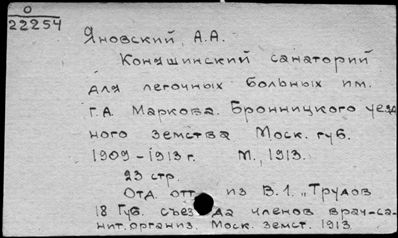 0
22254
Яновский, А.А.
Коняшинский санаторий
для легочных больных им.
Г.А. Маркова. Бронницкого уезд
ного земства Моск. губ.
1909-1913 г. М., 1913.
23 стр.
Отд. отт. из В.1. „Трудов
18 Губ. съезда членов врач-са-
нит. организ. Моск. земст. 1913